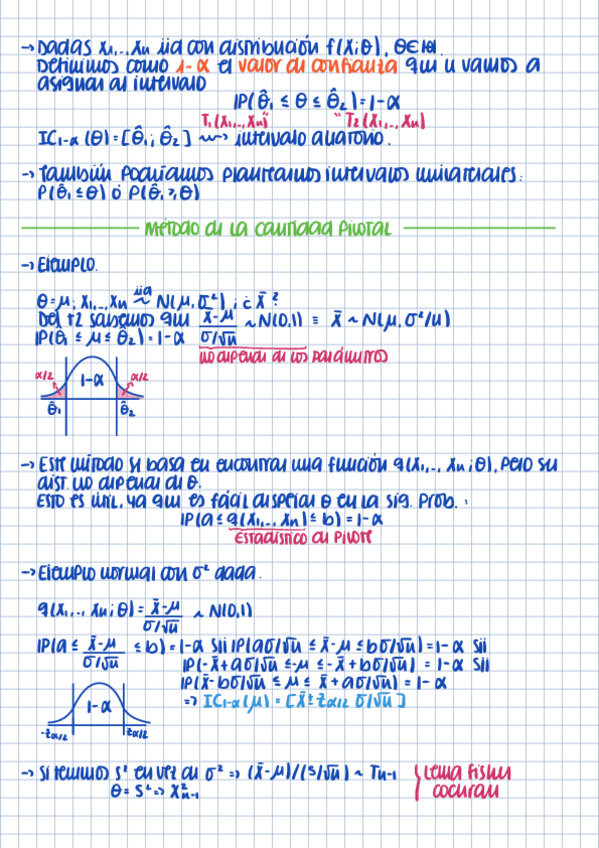 → Dadas X₁,..., Xn iid con distribución f(x;θ), θ∈Θ.
Definimos como 1-α el valor de confianza que le vamos a
asignar al intervalo
IP(θ̂₁ ≤ θ ≤ θ̂₂) = 1-α
T₁(X₁,..., Xn)" "T₂(X₁,..., Xn)
IC₁₋α(θ) = [θ̂₁ ; θ̂₂] ⟿ intervalo aleatorio.
→ También podríamos plantearnos intervalos unilaterales:
P(θ̂₁ ≤ θ) ó P(θ̂₁ ≥ θ)
Método de la cantidad pivotal
→ Ejemplo.
θ = μ; X₁,..., Xn iid ~ N(μ, σ²); ¿ x̄ ?
Del T2 sabemos que (x̄-μ)/(σ/√n) ~ N(0,1) ≡ x̄ ~ N(μ, σ²/n)
IP(θ̂₁ ≤ μ ≤ θ̂₂) = 1-α
no depende de los parámetros
α/2 1-α α/2
θ̂₁ θ̂₂
→ Este método se basa en encontrar una función q(X₁,..., Xn; θ), pero su
dist. no depende de θ.
Esto es útil, ya que es fácil despejar θ en la sig. prob. :
IP(a ≤ q(X₁,..., Xn) ≤ b) = 1-α
Estadístico de pivote
→ Ejemplo normal con σ² dada.
q(X₁,..., Xn; θ) = (x̄-μ)/(σ/√n) ~ N(0,1)
IP(a ≤ (x̄-μ)/(σ/√n) ≤ b) = 1-α sii IP(aσ/√n ≤ x̄-μ ≤ bσ/√n) = 1-α sii
IP(-x̄+aσ/√n ≤ -μ ≤ -x̄+bσ/√n) = 1-α sii
IP(x̄-bσ/√n ≤ μ ≤ x̄+aσ/√n) = 1-α
⇒ IC₁₋α(μ) = [x̄ ± zα/2 σ/√n]
1-α
-zα/2 zα/2
→ Si tenemos s² en vez de σ² ⇒ (x̄-μ)/(s/√n) ~ Tn-1 { Lema Fisher
θ = s² ⇒ χ²n-1 Cochran